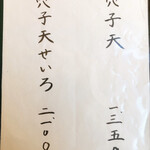 穴子天 一、三五〇
穴子天せいろ 二、一〇〇